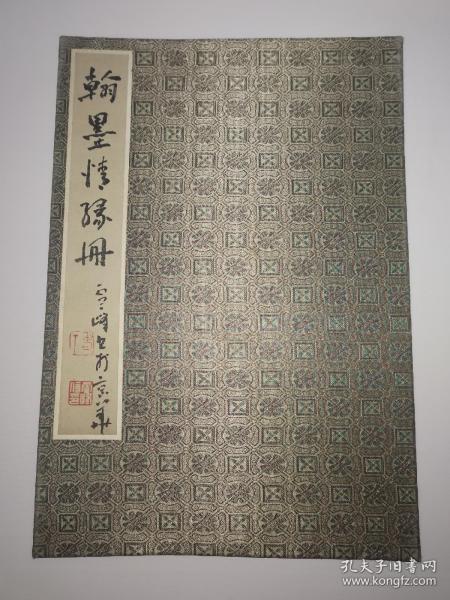 翰墨情缘册
书于京华
孔夫子旧书网
www.kongfz.com